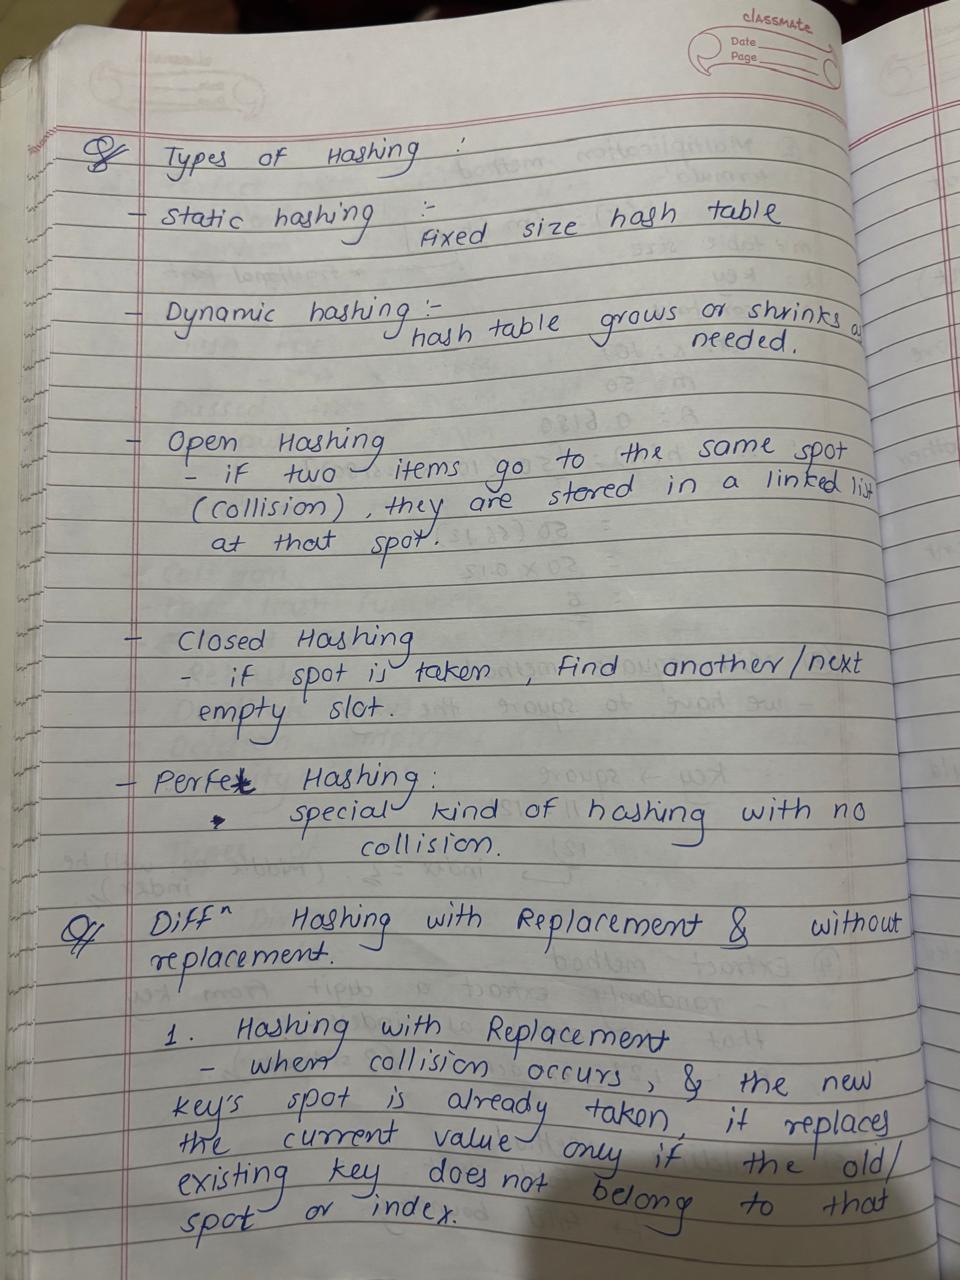 classmate
Date
Page
Q Types of Hashing :
- Static hashing :-
Fixed size hash table
- Dynamic hashing :-
hash table grows or shrinks as
needed.
- Open Hashing
- if two items go to the same spot
(collision), they are stored in a linked list
at that spot.
- Closed Hashing
- if spot is taken, find another/next
empty slot.
- Perfect Hashing:
• special kind of hashing with no
collision.
Q Diffⁿ Hashing with Replacement & without
replacement.
1. Hashing with Replacement
- when collision occurs, & the new
key's spot is already taken, it replaces
the current value only if the old/
existing key does not belong to that
spot or index.